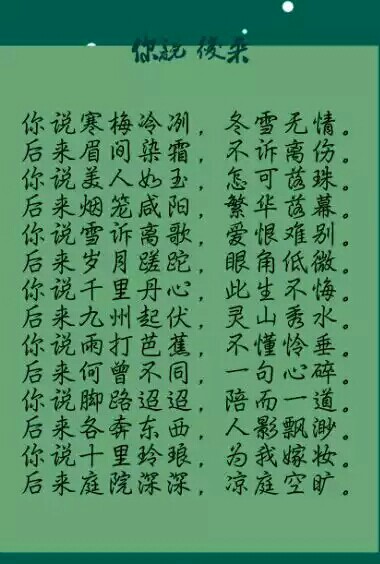 你说 后来
你说寒梅冷冽，冬雪无情。
后来眉间染霜，不诉离伤。
你说美人如玉，怎可落珠。
后来烟笼咸阳，繁华落幕。
你说雪诉离歌，爱恨难别。
后来岁月蹉跎，眼角低微。
你说千里丹心，此生不悔。
后来九州起伏，灵山秀水。
你说雨打芭蕉，不懂怜垂。
后来何曾不同，一句心碎。
你说脚路迢迢，陪而一道。
后来各奔东西，人影飘渺。
你说十里玲琅，为我嫁妆。
后来庭院深深，凉庭空旷。